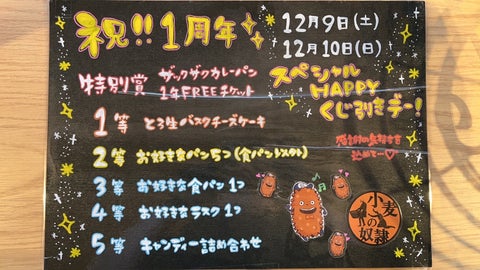 祝!!1周年
12月9日(土)
12月10日(日)
特別賞 ザックザクカレーパン
1年FREEチケット
スペシャル
HAPPY
くじ引きデー!
1等 とろ生バスクチーズケーキ
2等 お好きなパン5つ(食パン以外)
3等 お好きな食パン1つ
4等 お好きなラスク1つ
5等 キャンディー詰め合わせ
込めて…♡
小麦
の
奴隷